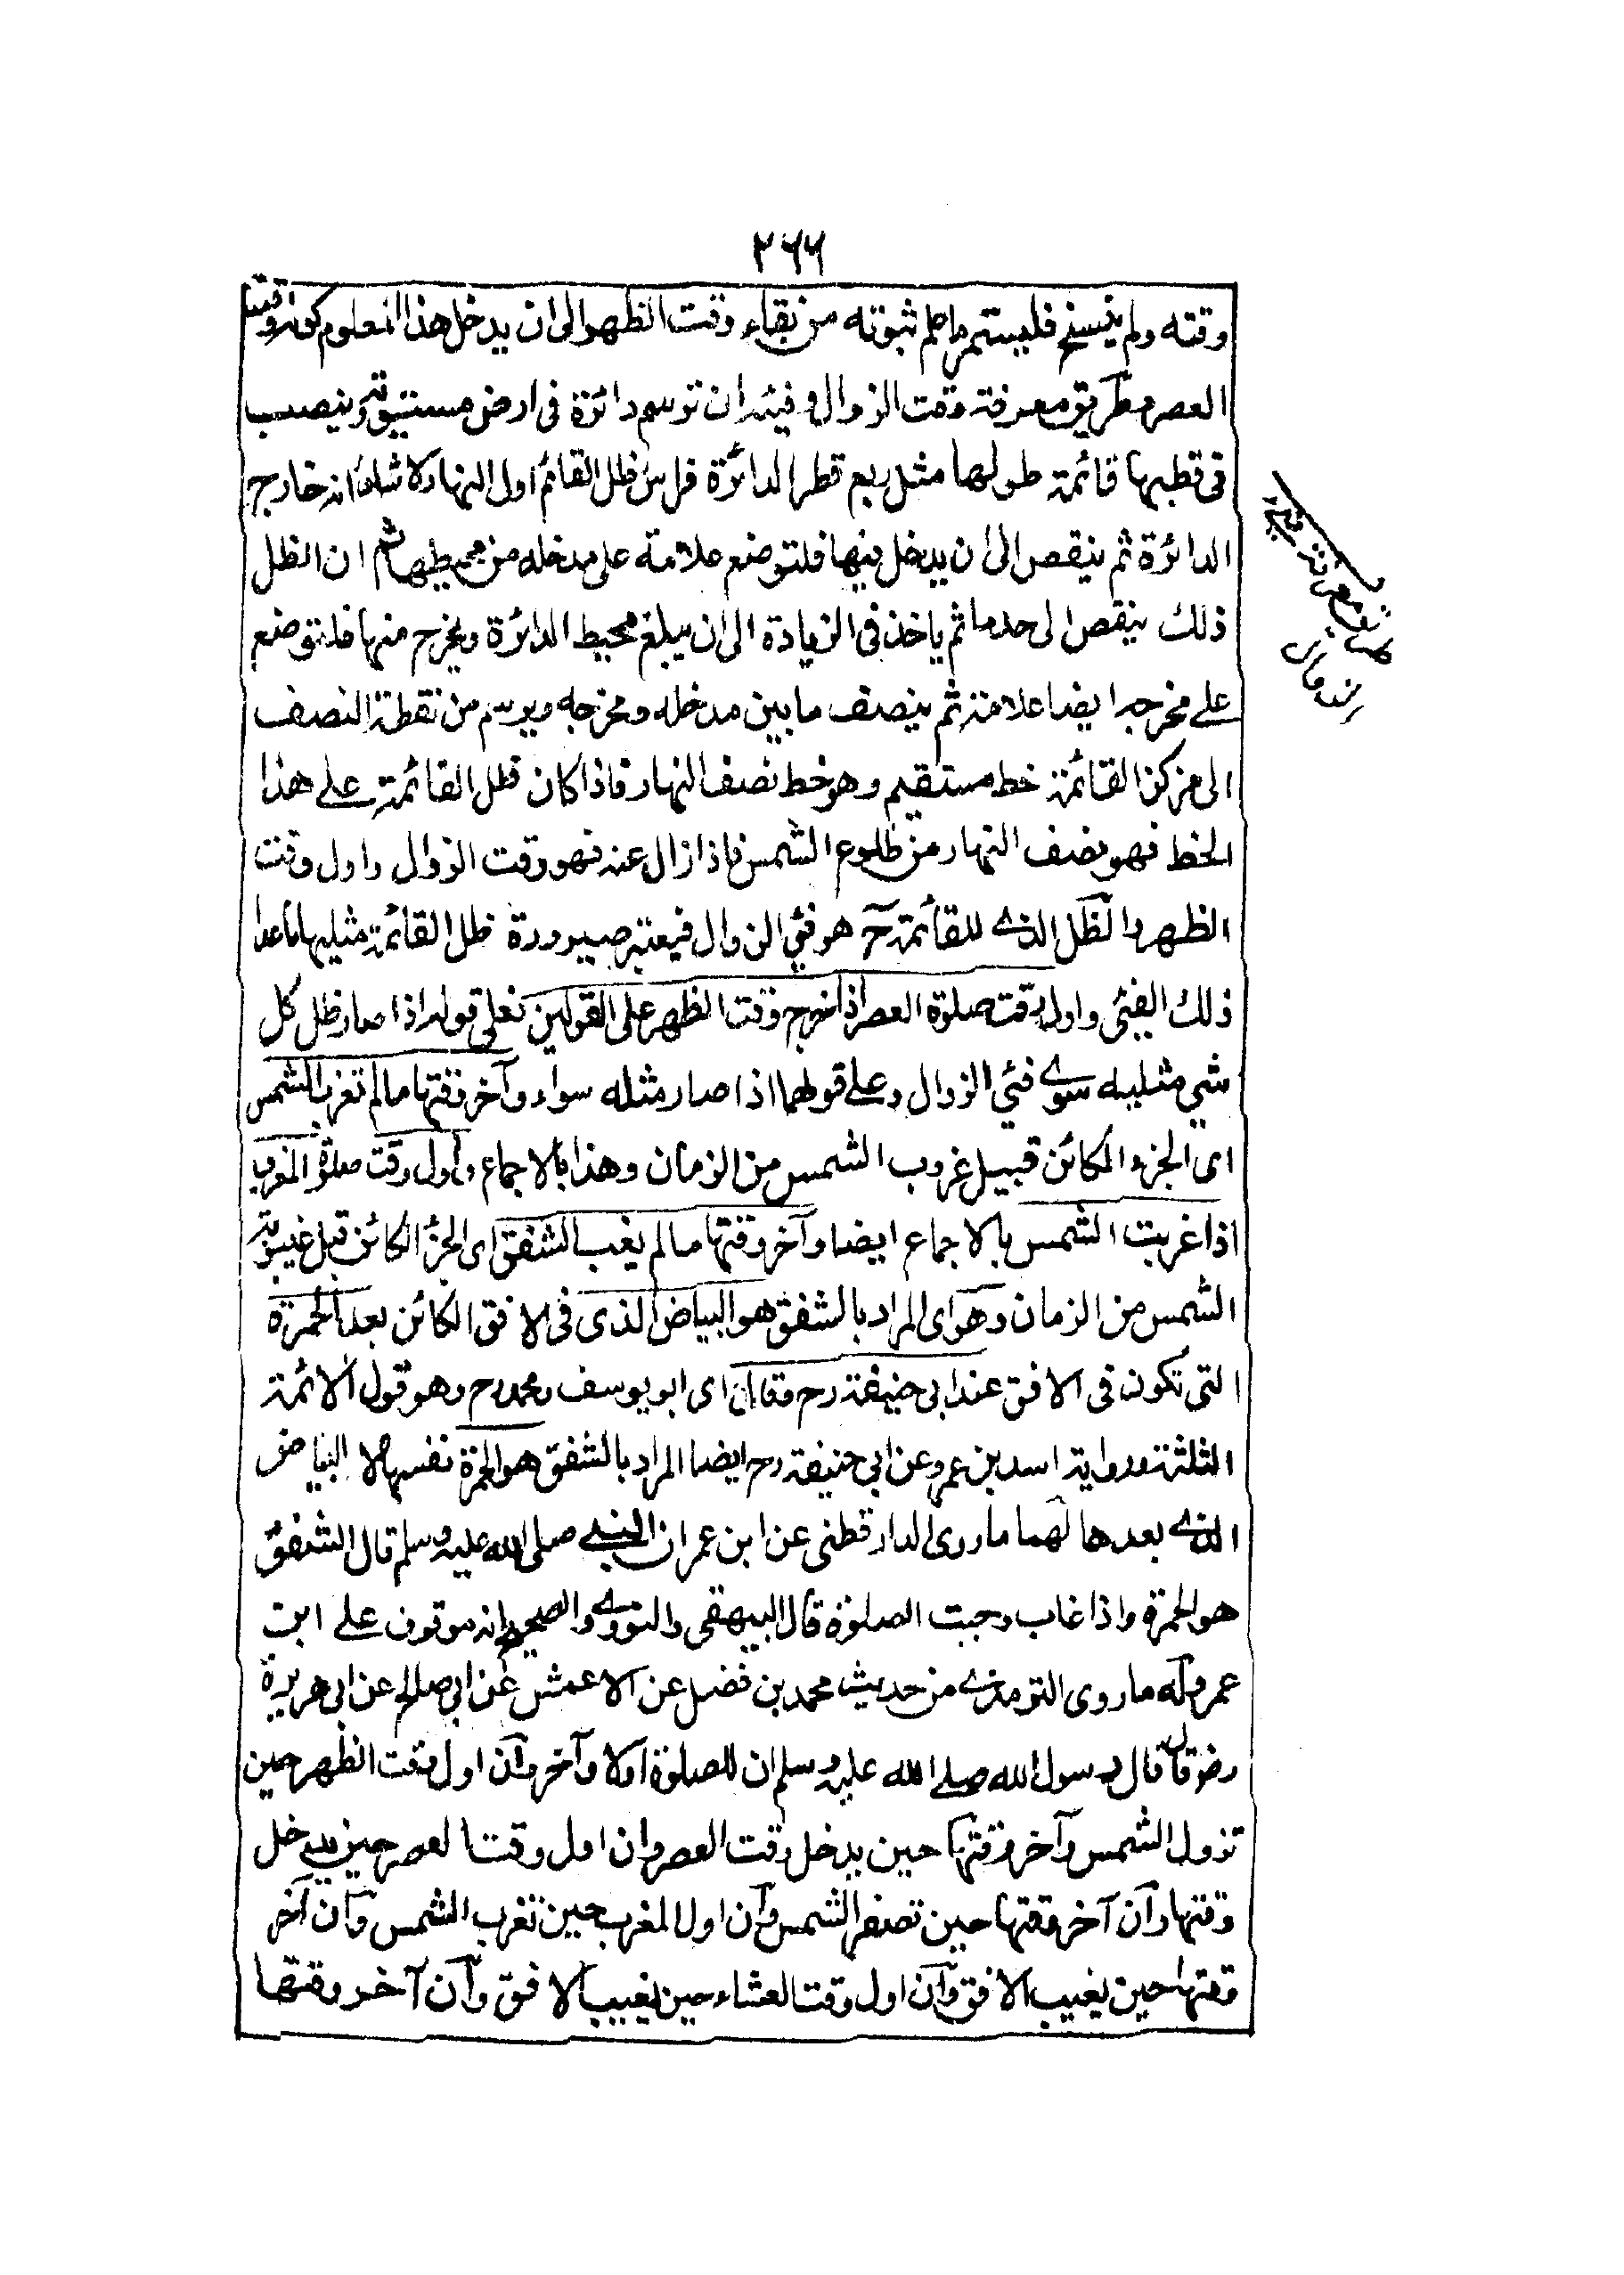 ٢٦٦
وقته ولم ينسخ فليستمر ما علم ثبوته من بقاء وقت الظهر الى ان يدخل هذا المعلوم كونه وقتا
العصر وطريق معرفة وقت الزوال وفيئه ان ترسم دائرة فى ارض مستوية وينصب
فى قطبها قائمة طولها مثل ربع قطر الدائرة فرأس ظل القائم اول النهار لا شك انه خارج
الدائرة ثم ينقص الى ان يدخل فيها فلتوضع علامة على مدخله من محيطها ثم ان الظل
ذلك ينقص الى حد ما ثم ياخذ فى الزيادة الى ان يبلغ محيط الدائرة ويخرج منها فلتوضع
على مخرجه ايضا علامة ثم ينصف ما بين مدخله ومخرجه ويرسم من نقطة النصف
الى مركز القائمة خط مستقيم وهو خط نصف النهار فاذا كان ظل القائمة على هذا
الخط فهو نصف النهار من طلوع الشمس فاذا زال عنه فهو وقت الزوال واول وقت
الظهر والظل الذى للقائمة ح هو فئ الزوال فيعتبر صيرورة ظل القائمة مثليها ما عدا
ذلك الفئى واول وقت صلوة العصر اذا خرج وقت الظهر على القولين فعلى قوله اذا صار ظل كل
شئ مثليه سوى فئي الزوال وعلى قولهما اذا صار مثله سواء وآخر وقتها ما لم تغرب الشمس
اى الجزء الكائن قبيل غروب الشمس من الزمان وهذا بالاجماع واول وقت صلوة المغرب
اذا غربت الشمس بالاجماع ايضا وآخر وقتها ما لم يغب الشفق اى الجزء الكائن قبل غيبوبة
الشمس من الزمان وهو اى المراد بالشفق هو البياض الذى فى الافق الكائن بعد الحمرة
التى تكون فى الافق عند ابى حنيفة رح وقالا اى ابو يوسف ومحمد رح وهو قول الائمة
الثلثة ورواية اسد بن عمرو عن ابى حنيفة رح ايضا المراد بالشفق هو الحمرة نفسها لا البياض
الذى بعدها لهما ما روى الدار قطنى عن ابن عمر ان النبى صلى الله عليه وسلم قال الشفق
هو الحمرة واذا غاب وجبت الصلوة قال البيهقى والنووى والصحيح انه موقوف على ابن
عمر وله ما روى الترمذى من حديث محمد بن فضيل عن الاعمش عن ابى صالح عن ابى هريرة
رض قال قال رسول الله صلى الله عليه وسلم ان للصلوة اولا وآخر وان اول وقت الظهر حين
تزول الشمس وآخر وقتها حين يدخل وقت العصر وان اول وقت العصر حين يدخل
وقتها وان آخر وقتها حين تصفر الشمس وان اول المغرب حين تغرب الشمس وان آخر
وقتها حين يغيب الافق وان اول وقت العشاء حين يغيب الافق وان آخر وقتها